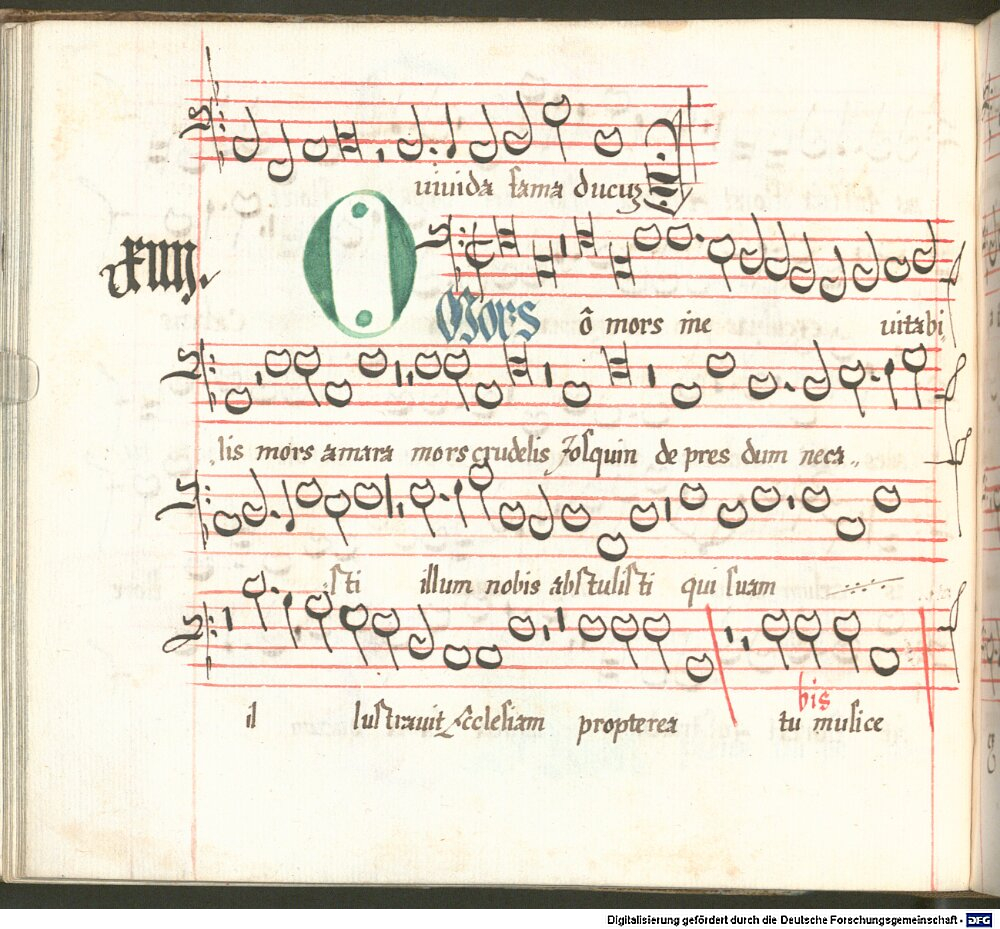 uiuida fama ducuz
xiiij.
O Mors ō mors ine uitabi
lis mors amara mors crudelis Josquin de pres dum neca..
sti illum nobis abstulisti qui suam
il lustrauit Ecclesiam propterea tu musice
bis
Digitalisierung gefördert durch die Deutsche Forschungsgemeinschaft - DFG